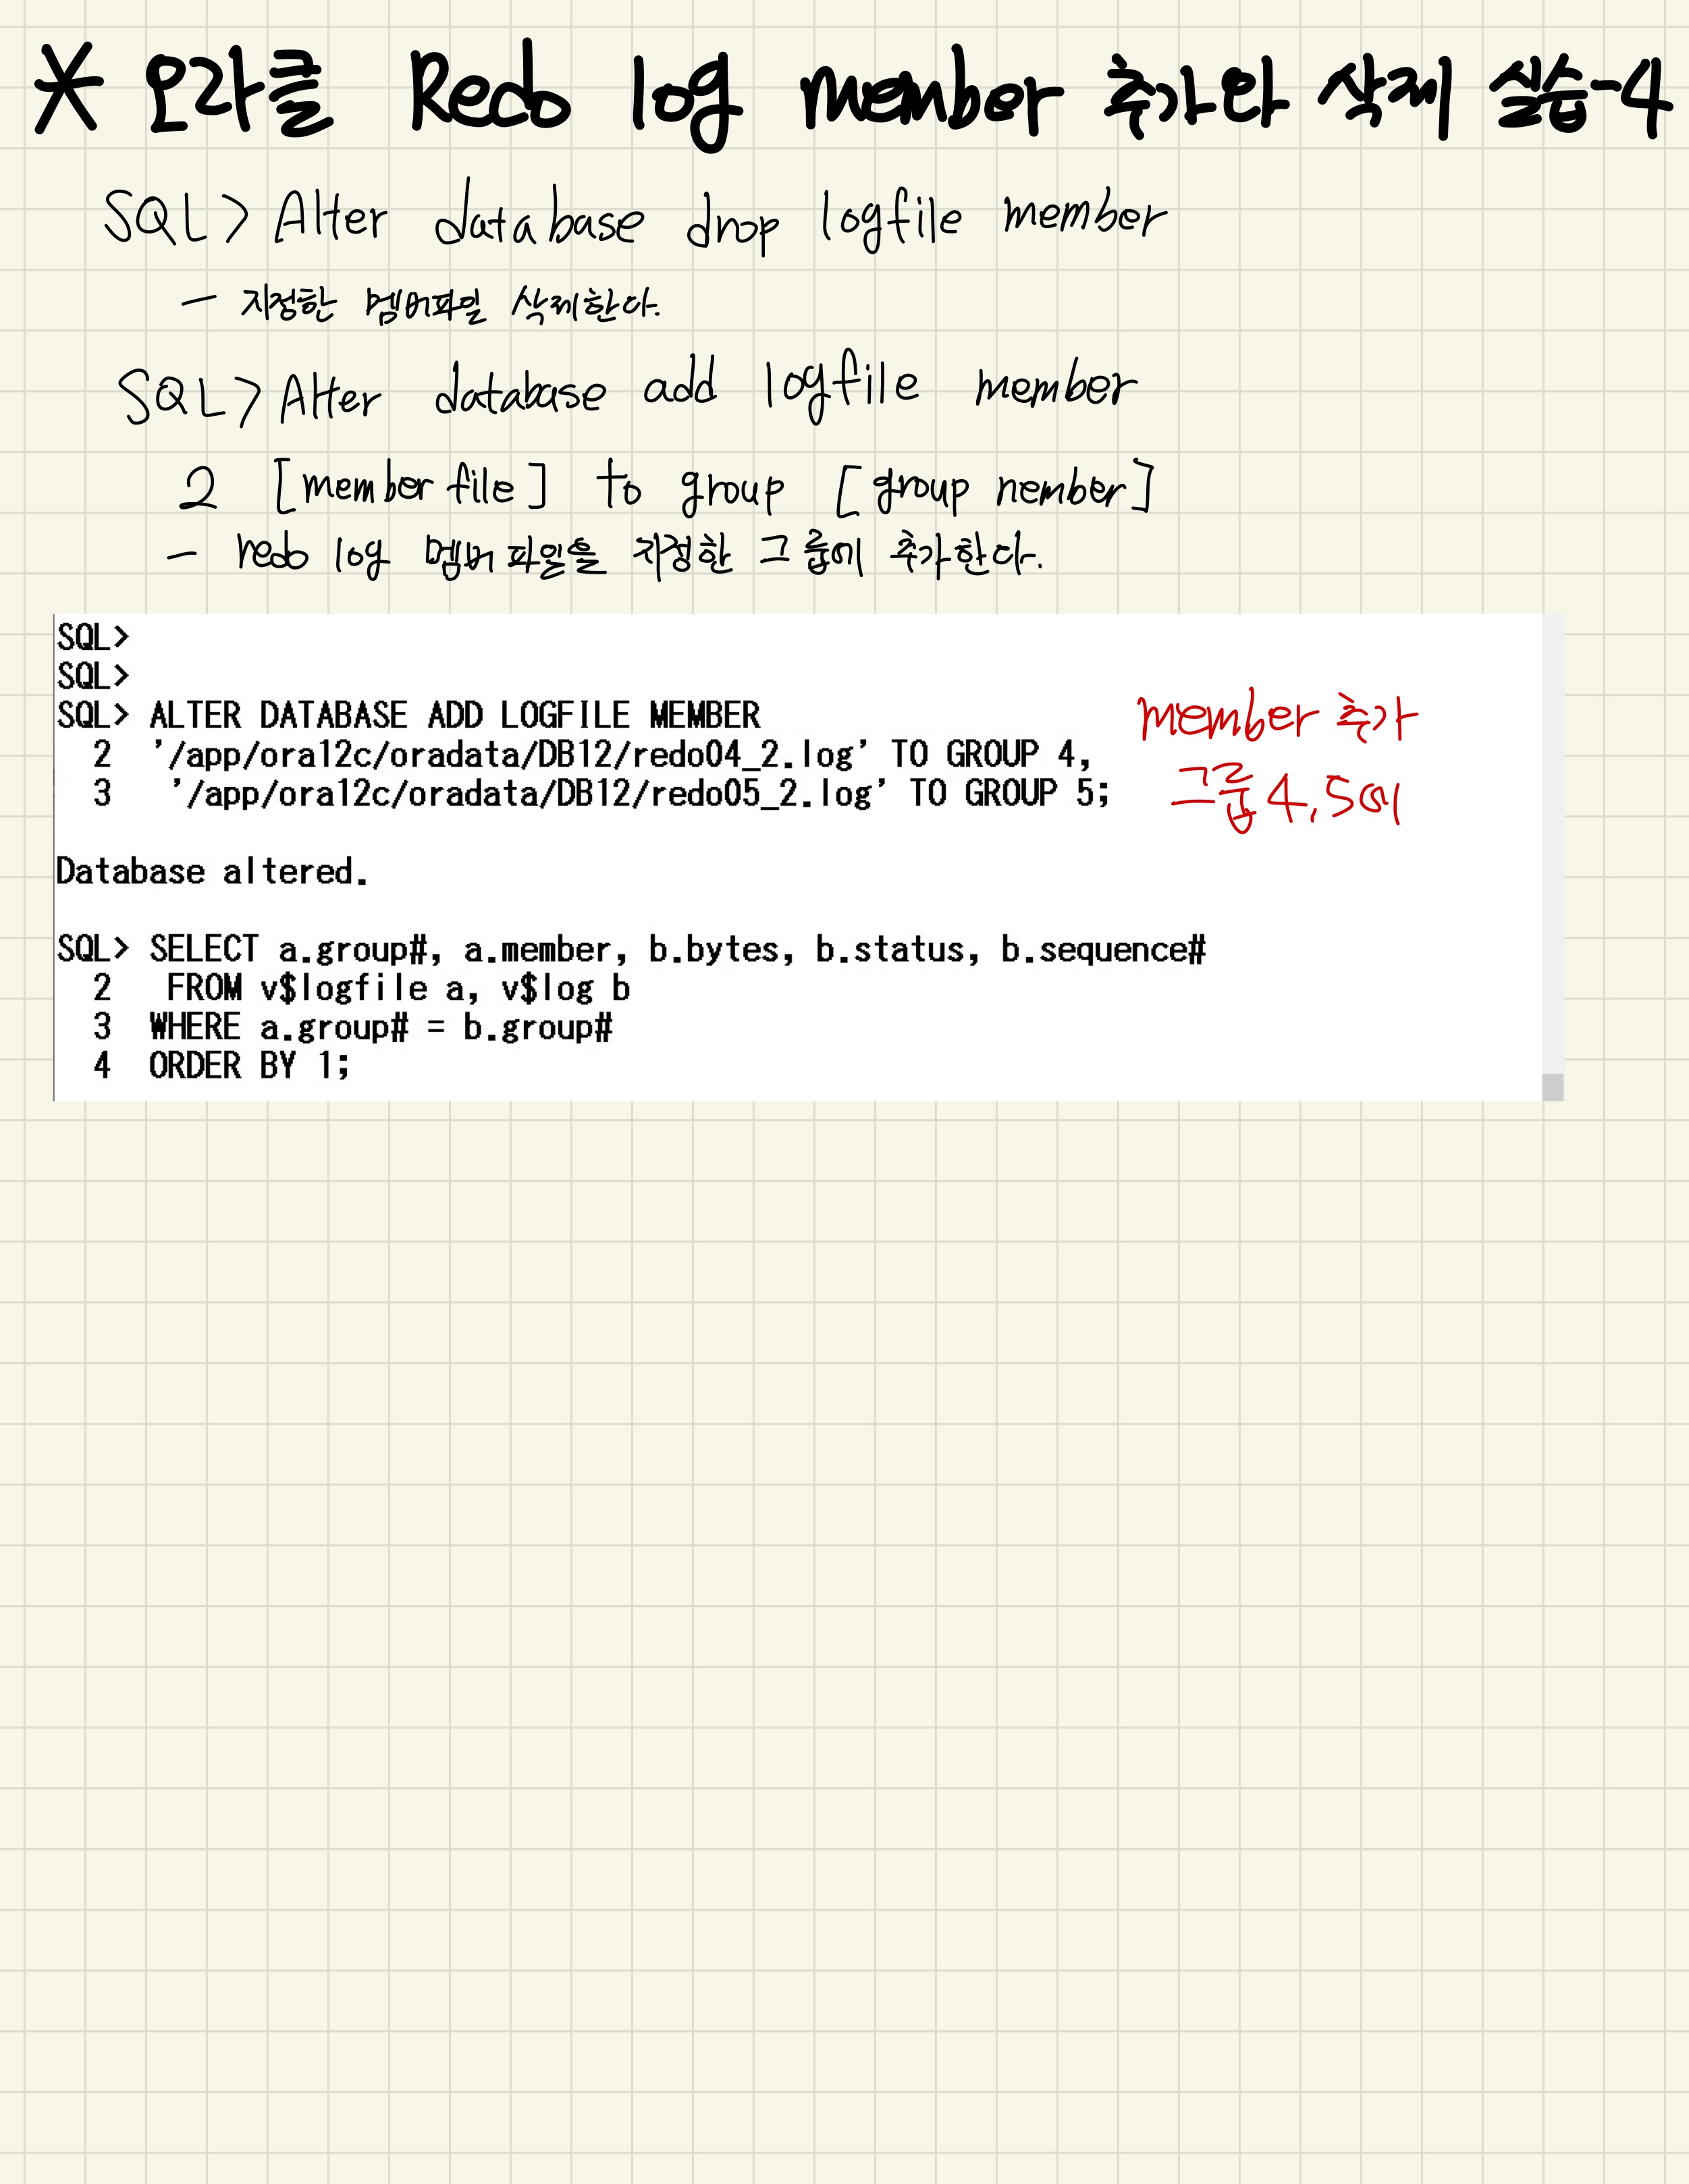 * 오라클 Redo log member 추가와 삭제 실습-4
SQL> Alter database drop logfile member
- 지정한 멤버파일 삭제한다.
SQL> Alter database add logfile member
2 [member file] to group [group nember]
- redo log 멤버 파일을 지정한 그룹에 추가한다.
SQL>
SQL>
SQL> ALTER DATABASE ADD LOGFILE MEMBER
2 '/app/ora12c/oradata/DB12/redo04_2.log' TO GROUP 4,
3 '/app/ora12c/oradata/DB12/redo05_2.log' TO GROUP 5;
member 추가
그룹4,5에
Database altered.
SQL> SELECT a.group#, a.member, b.bytes, b.status, b.sequence#
2 FROM v$logfile a, v$log b
3 WHERE a.group# = b.group#
4 ORDER BY 1;